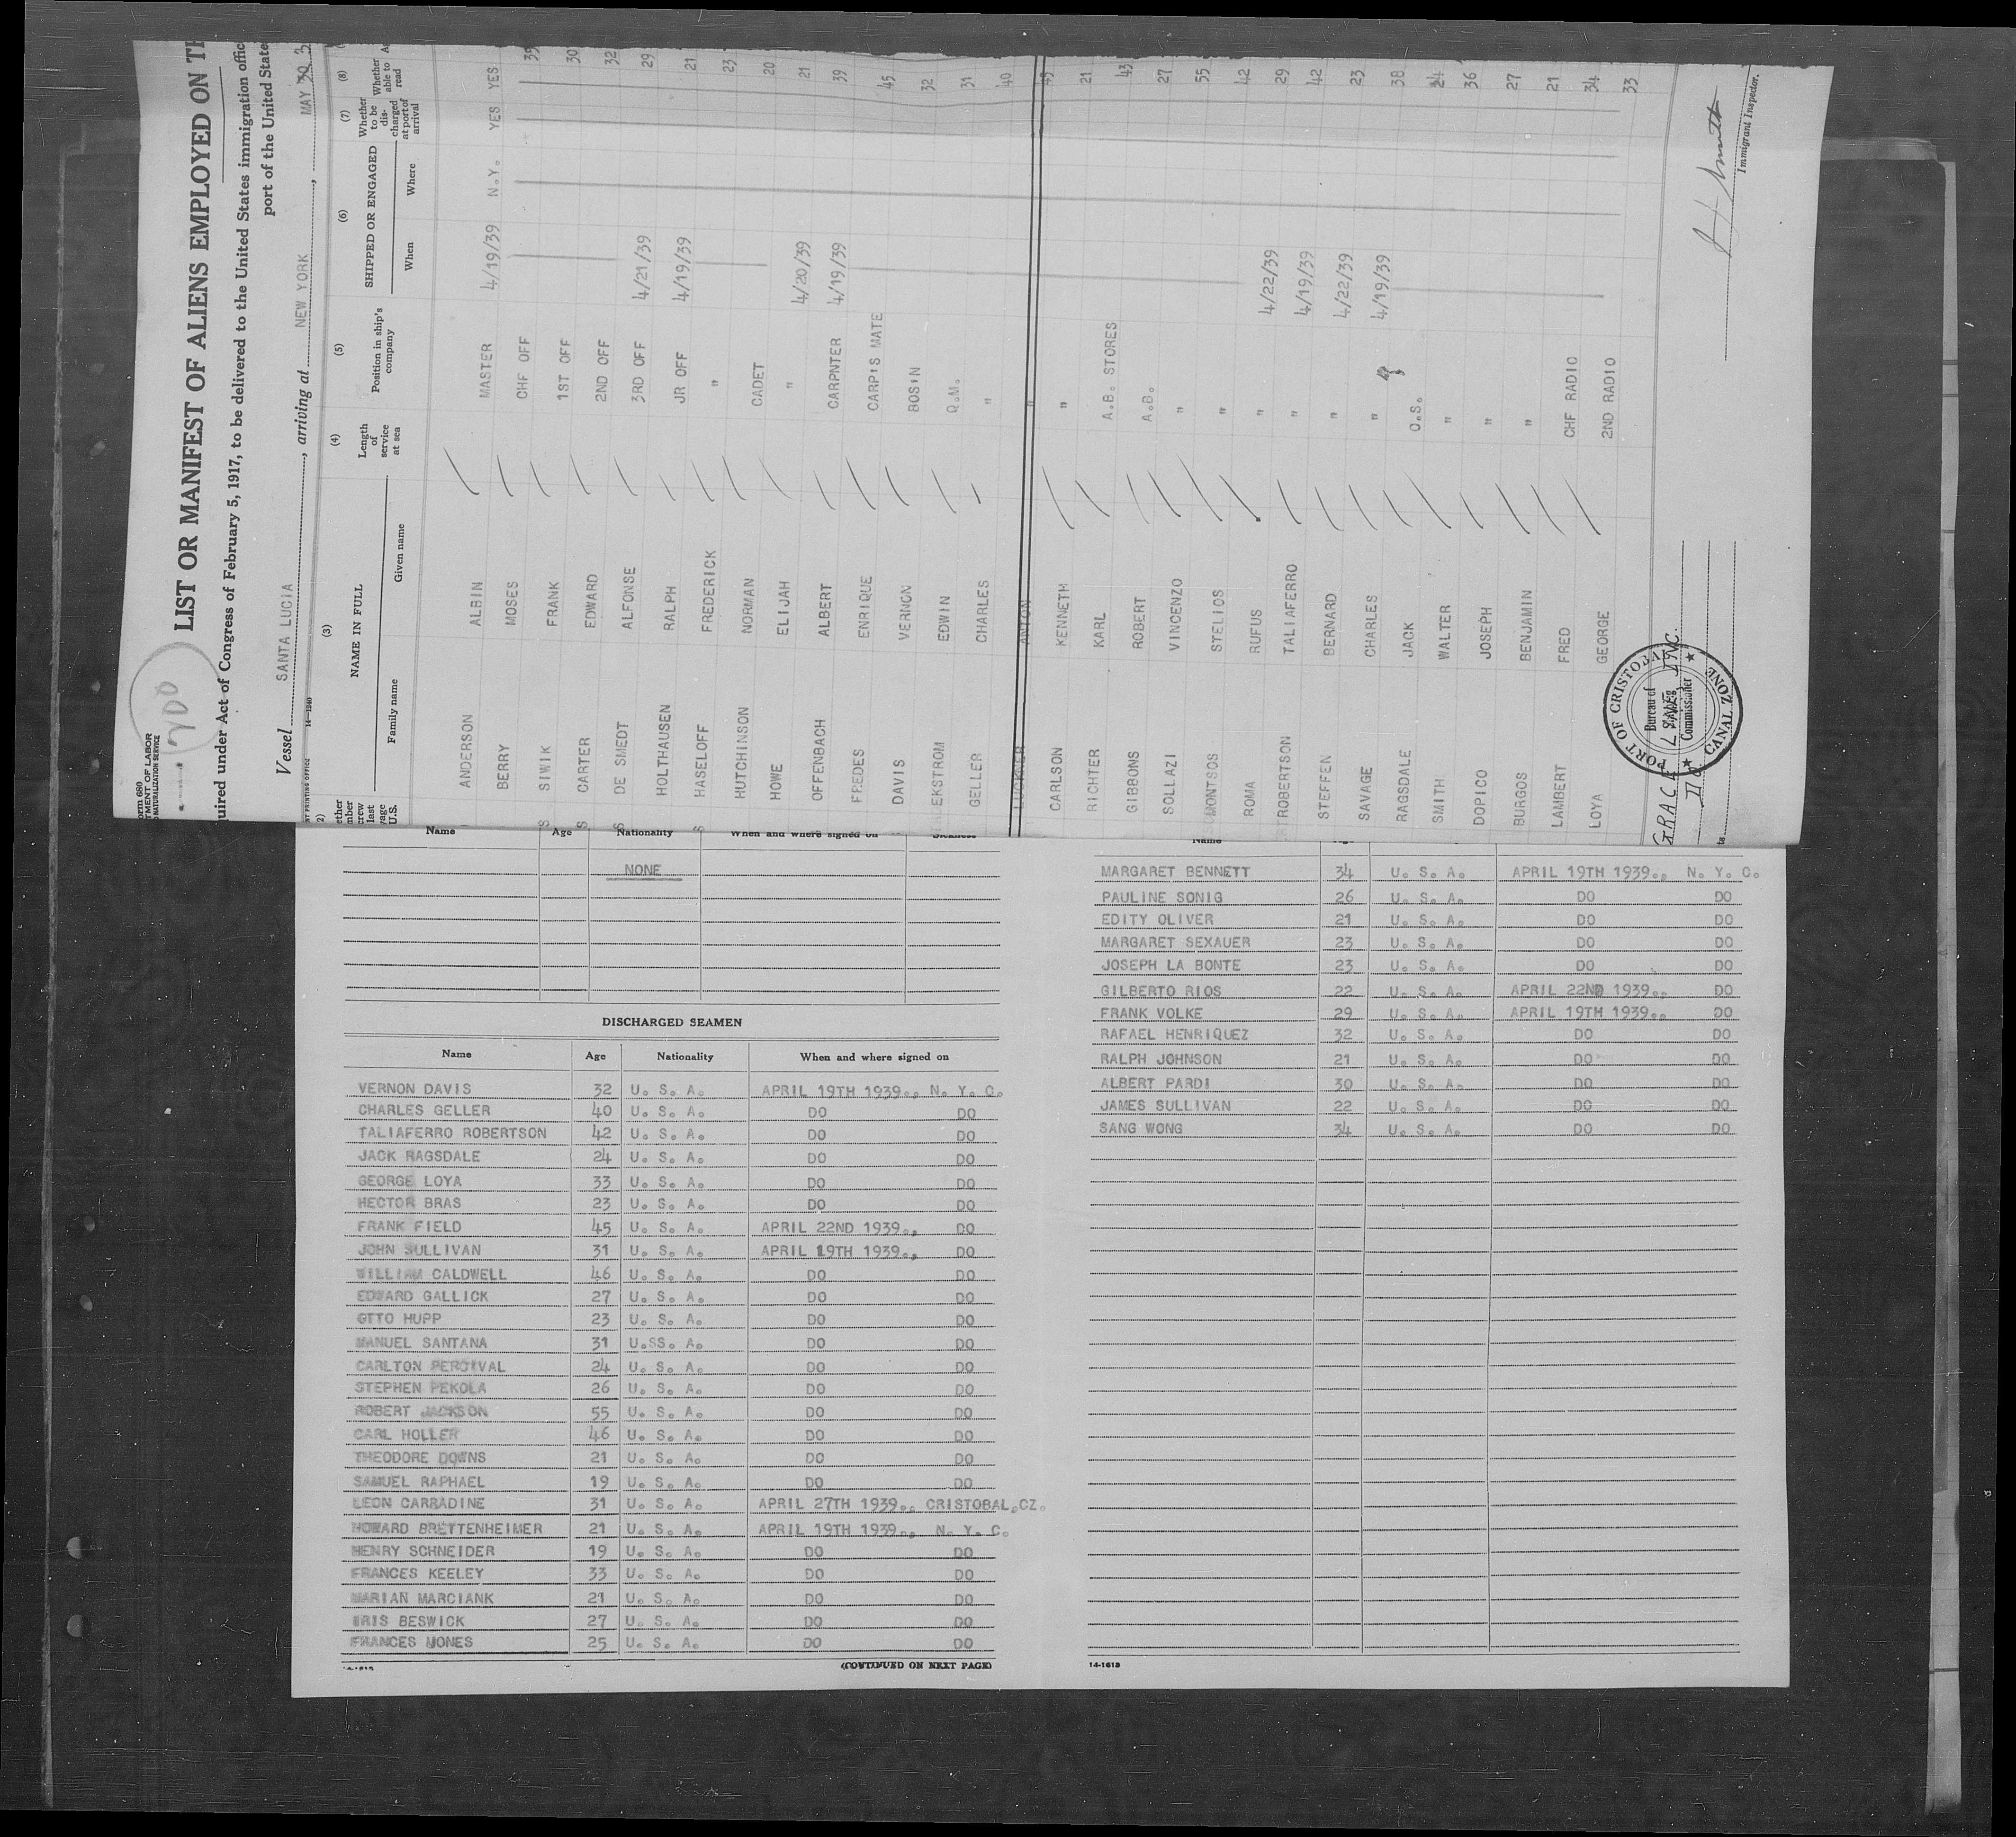 Form 680
TMENT OF LABOR
NATURALIZATION SERVICE
700
LIST OR MANIFEST OF ALIENS EMPLOYED ON TH
uired under Act of Congress of February 5, 1917, to be delivered to the United States immigration offic
port of the United State
Vessel SANTA LUCIA, arriving at NEW YORK, MAY
NT PRINTING OFFICE 14—1240
2) (3) (4) (5) (6) (7) (8)
ether mber crew last yage U.S. NAME IN FULL Length of service at sea Position in ship's company SHIPPED OR ENGAGED Whether to be dis-charged at port of arrival Whether able to read
Family name Given name When Where
ANDERSON ALBIN MASTER 4/19/39 N.Y. YES YES 39
BERRY MOSES CHF OFF 30
SIWIK FRANK 1ST OFF 32
CARTER EDWARD 2ND OFF 29
DE SMEDT ALFONSE 3RD OFF 4/21/39 21
HOLTHAUSEN RALPH JR OFF 4/19/39 23
HASELOFF FREDERICK " 20
HUTCHINSON NORMAN CADET 21
HOWE ELIJAH " 4/20/39 39
OFFENBACH ALBERT CARPNTER 4/19/39 45
FREDES ENRIQUE CARP'S MATE 32
DAVIS VERNON BOS'N 31
EKSTROM EDWIN Q.M. 40
GELLER CHARLES "
ANTON "
CARLSON KENNETH " 21
RICHTER KARL A.B. STORES 43
GIBBONS ROBERT A.B. 27
SOLLAZI VINCENZO " 55
MONTSOS STELIOS " 42
ROMA RUFUS " 4/22/39 29
ROBERTSON TALIAFERRO " 4/19/39 42
STEFFEN BERNARD " 4/22/39 23
SAVAGE CHARLES " 4/19/39 38
RAGSDALE JACK O.S. 24
SMITH WALTER " 36
DOPICO JOSEPH " 27
BURGOS BENJAMIN " 21
LAMBERT FRED CHF RADIO 34
LOYA GEORGE 2ND RADIO 33
GRACE LINE, INC.
PORT OF CRISTOBAL
Bureau of
Commissioner
CANAL ZONE
Immigrant Inspector.
Name Age Nationality When and where signed on Sickness
NONE
DISCHARGED SEAMEN
Name Age Nationality When and where signed on
VERNON DAVIS 32 U. S. A. APRIL 19TH 1939., N. Y. C.
CHARLES GELLER 40 U. S. A. DO DO
TALIAFERRO ROBERTSON 42 U. S. A. DO DO
JACK RAGSDALE 24 U. S. A. DO DO
GEORGE LOYA 33 U. S. A. DO DO
HECTOR BRAS 23 U. S. A. DO DO
FRANK FIELD 45 U. S. A. APRIL 22ND 1939., DO
JOHN SULLIVAN 31 U. S. A. APRIL 19TH 1939., DO
WILLIAM CALDWELL 46 U. S. A. DO DO
EDWARD GALLICK 27 U. S. A. DO DO
OTTO HUPP 23 U. S. A. DO DO
MANUEL SANTANA 31 U.SS. A. DO DO
CARLTON PERCIVAL 24 U. S. A. DO DO
STEPHEN PEKOLA 26 U. S. A. DO DO
ROBERT JACKSON 55 U. S. A. DO DO
CARL HOLLER 46 U. S. A. DO DO
THEODORE DOWNS 21 U. S. A. DO DO
SAMUEL RAPHAEL 19 U. S. A. DO DO
LEON CARRADINE 31 U. S. A. APRIL 27TH 1939., CRISTOBAL,CZ.
HOWARD BRETTENHEIMER 21 U. S. A. APRIL 19TH 1939., N. Y. C.
HENRY SCHNEIDER 19 U. S. A. DO DO
FRANCES KEELEY 33 U. S. A. DO DO
MARIAN MARCIANK 21 U. S. A. DO DO
IRIS BESWICK 27 U. S. A. DO DO
FRANCES MONES 25 U. S. A. DO DO
(CONTINUED ON NEXT PAGE)
Name
MARGARET BENNETT 34 U. S. A. APRIL 19TH 1939., N. Y. C.
PAULINE SONIG 26 U. S. A. DO DO
EDITY OLIVER 21 U. S. A. DO DO
MARGARET SEXAUER 23 U. S. A. DO DO
JOSEPH LA BONTE 23 U. S. A. DO DO
GILBERTO RIOS 22 U. S. A. APRIL 22ND 1939., DO
FRANK VOLKE 29 U. S. A. APRIL 19TH 1939., DO
RAFAEL HENRIQUEZ 32 U. S. A. DO DO
RALPH JOHNSON 21 U. S. A. DO DO
ALBERT PARDI 30 U. S. A. DO DO
JAMES SULLIVAN 22 U. S. A. DO DO
SANG WONG 34 U. S. A. DO DO
14-1613